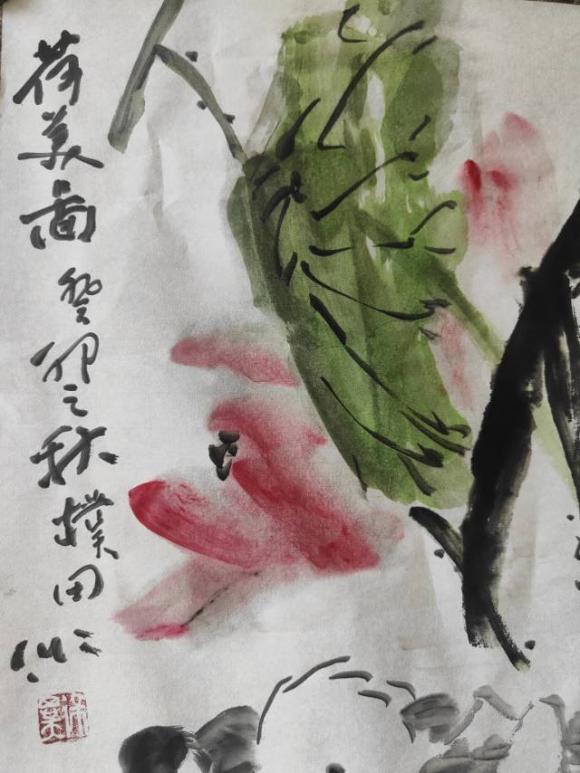 荷美图癸卯之秋扑田